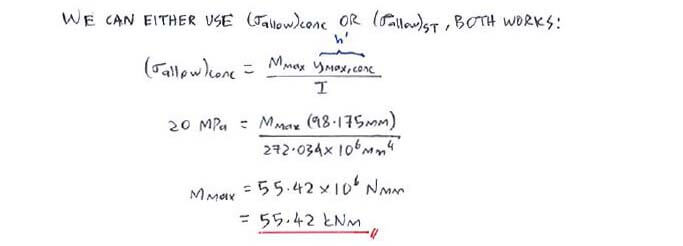 WE CAN EITHER USE (σallow)conc OR (σallow)ST, BOTH WORKS:
h'
(σallow)conc = Mmax ymax,conc
I
20 MPa = Mmax (98.175mm)
272.034x10⁶mm⁴
Mmax = 55.42x10⁶ Nmm
= 55.42 kNm